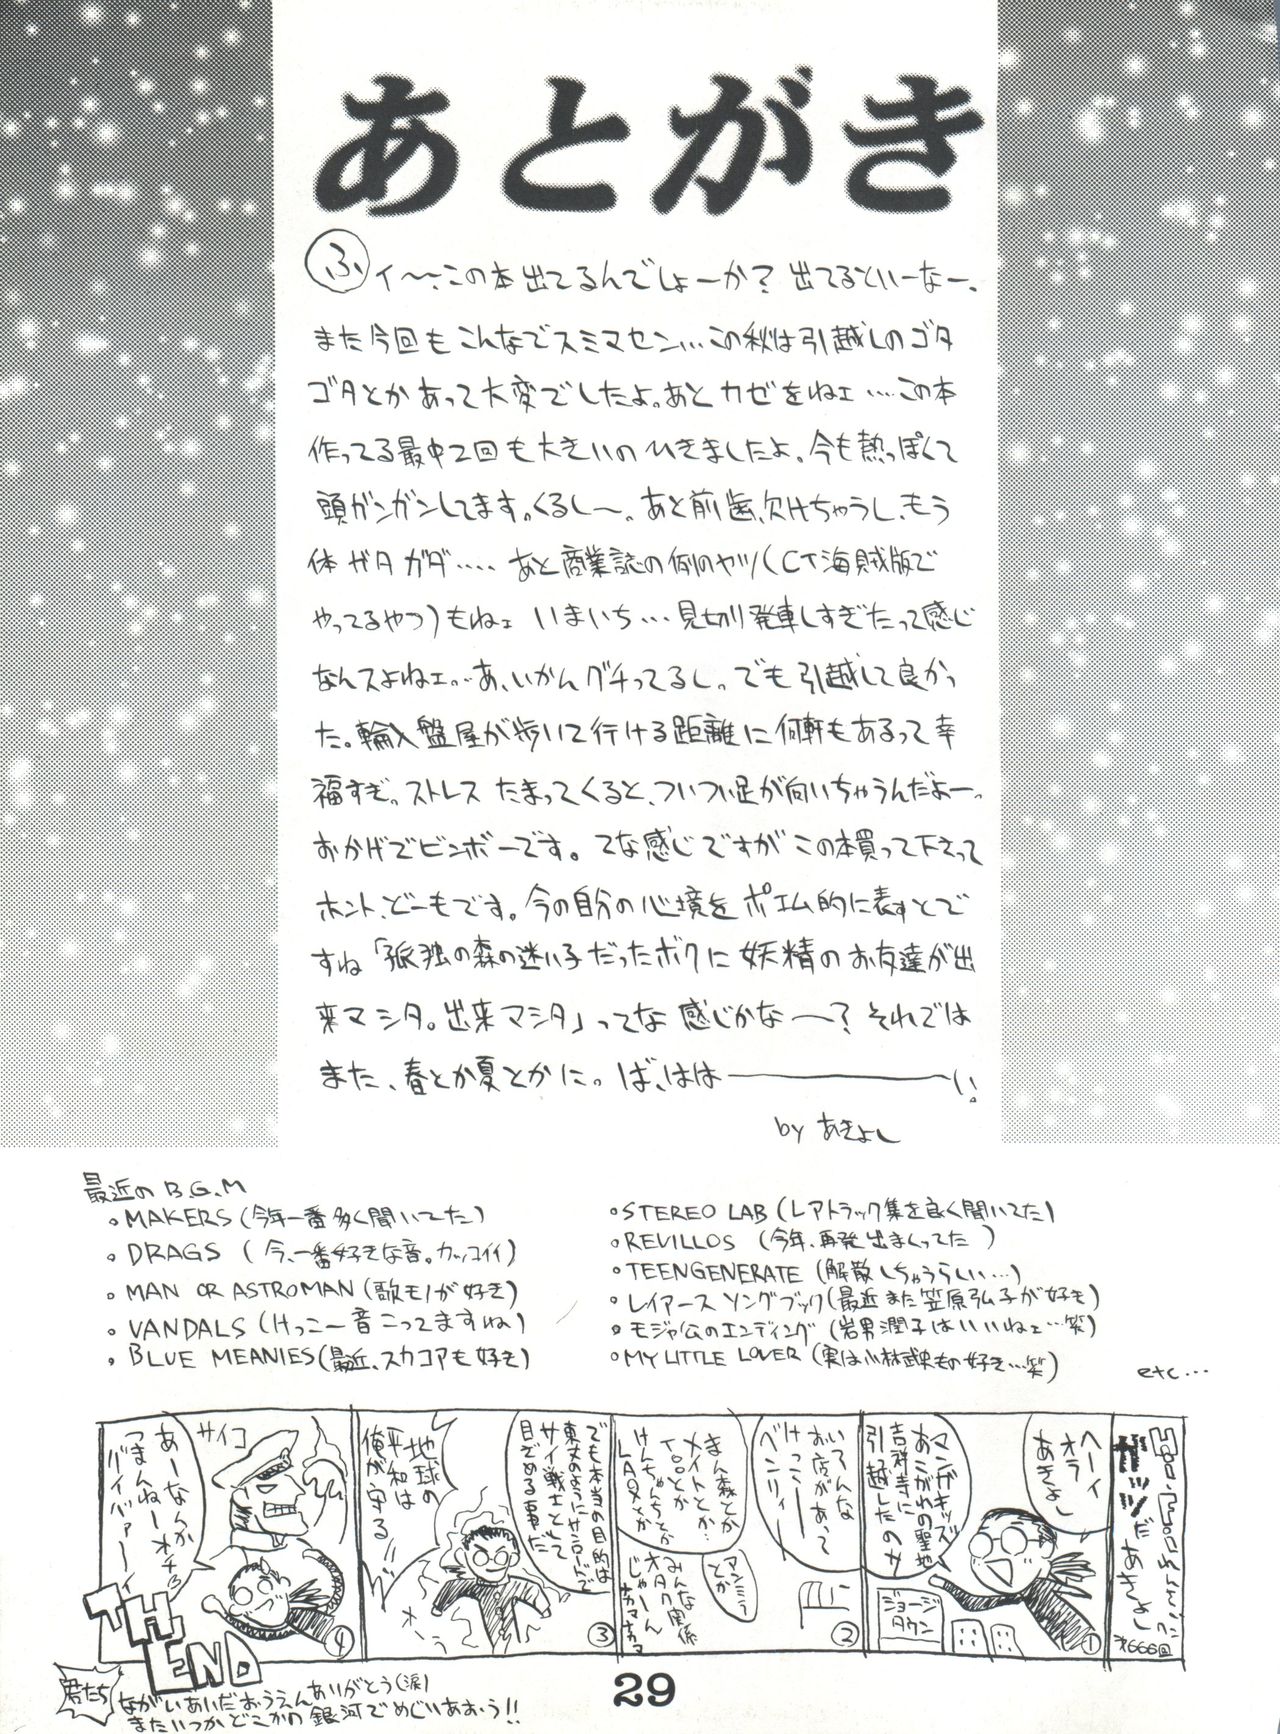 あとがき
ふィ〜、この本出てるんでしょーか？出てるといーなー。
また今回もこんなでスミマセン…この秋は引越しのゴタ
ゴタとかあって大変でしたよ。あとカゼをねェ……この本
作ってる最中2回も大きいのひきましたよ。今も熱っぽくて
頭ガンガンしてます。くるし〜。あと前歯、欠けちゃうし、もう
体ガタガタ……あと商業誌の例のヤツ(CT海賊版で
やってるやつ)もねェいまいち…見切り発車しすぎたって感じ
なんスよねェ…あ、いかんグチってるし。でも引越して良かっ
た。輸入盤屋が歩いて行ける距離に何軒もあるって幸
福すぎ。ストレスたまってくると、ついつい足が向いちゃうんだよー。
おかげでビンボーです。てな感じですがこの本買って下さって
ホント、どーもです。今の自分の心境をポエム的に表すとで
すね「孤独の森の迷い子だったボクに妖精のお友達が出
来マシタ。出来マシタ」ってな感じかな〜？それでは
また、春とか夏とかに。ば、はは――――い。
by あきよし
最近のB.G.M
。MAKERS (今年一番多く聞いてた)
。DRAGS (今、一番好きな音。カッコイイ)
。MAN OR ASTROMAN (歌モノが好き)
。VANDALS (けっこー音こってますね)
。BLUE MEANIES (最近、スカコアも好き)
。STEREO LAB (レアトラック集を良く聞いてた)
。REVILLOS (今年、再発出まくってた)
。TEENGENERATE (解散しちゃうらしい…)
。レイアースソングブック (最近また笠原弘子が好も)
。モジャ公のエンディング (岩男潤子はいいねェ…笑)
。MY LITTLE LOVER (実は小林武史もの好き…笑)
etc…
ガッツだ
あきよし
オ666回
ヘーイ
オラ
あきよし
マンガキッズ
あこがれの聖地
吉祥寺に
引越したのサ
ジョージ
タウン
①
いろんな
お店があって
けっこー
ベンリィ
まん森とか
メイトとか…
Tooとか
けんちゃんちとか
LAOXとか
アンミラ
とか
みんな
オタク関係
じゃーん
ナカマナカマ
②
でも本当の目的は
東丈のように吉祥寺で
サイ戦士として
目ざめる事だ
地球の
平和は
俺が守る!!
③
サイコ
あーなんか
つまんねーオチ
バイバァーイ
④
TH END
君たち
ながいあいだおうえんありがとう(涙)
またいつかどこかの銀河でめぐりあおう!!
29